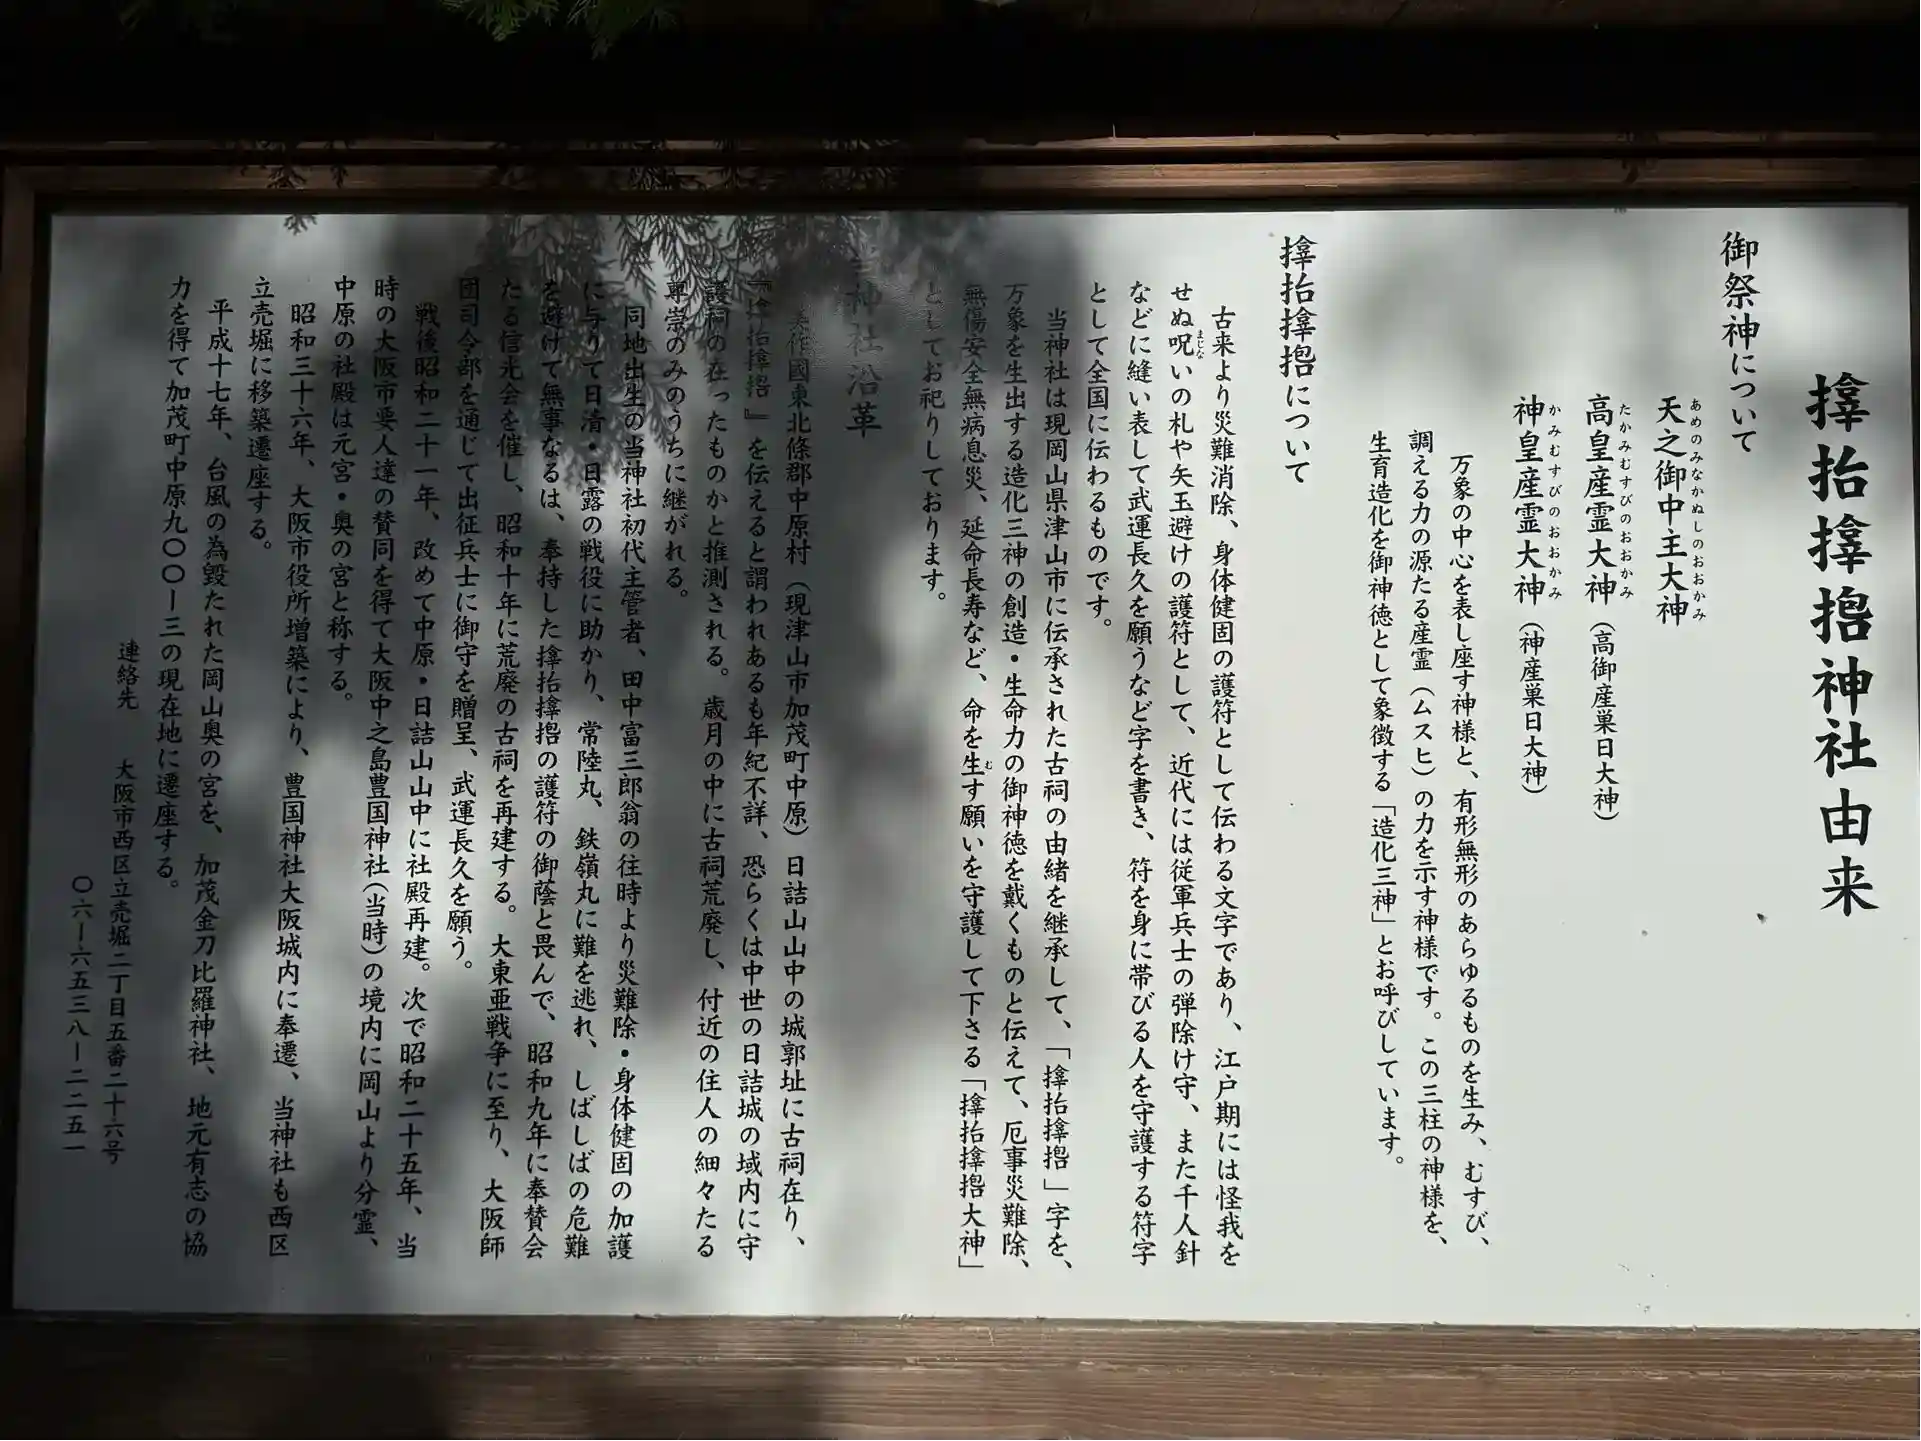 𪮷抬𪮷𪮇神社由来
御祭神について
天之御中主大神
あめのみなかぬしのおおかみ
高皇産霊大神(高御産巣日大神)
たかみむすびのおおかみ
神皇産霊大神(神産巣日大神)
かみむすびのおおかみ
万象の中心を表し座す神様と、有形無形のあらゆるものを生み、むすび、
調える力の源たる産霊(ムスヒ)の力を示す神様です。この三柱の神様を、
生育造化を御神徳として象徴する「造化三神」とお呼びしています。
𪮷抬𪮷𪮇について
古来より災難消除、身体健固の護符として伝わる文字であり、江戸期には怪我を
せぬ呪いの札や矢玉避けの護符として、近代には従軍兵士の弾除け守、また千人針
まじな
などに縫い表して武運長久を願うなど字を書き、符を身に帯びる人を守護する符字
として全国に伝わるものです。
当神社は現岡山県津山市に伝承された古祠の由緒を継承して、「𪮷抬𪮷𪮇」字を、
万象を生出する造化三神の創造・生命力の御神徳を戴くものと伝えて、厄事災難除、
無傷安全無病息災、延命長寿など、命を生す願いを守護して下さる「𪮷抬𪮷𪮇大神」
む
としてお祀りしております。
当神社沿革
美作國東北條郡中原村(現津山市加茂町中原)日詰山山中の城郭址に古祠在り、
『𪮷抬𪮷𪮇』を伝えると謂われあるも年紀不詳、恐らくは中世の日詰城の域内に守
護祠の在ったものかと推測される。歳月の中に古祠荒廃し、付近の住人の細々たる
尊崇のみのうちに継がれる。
同地出生の当神社初代主管者、田中富三郎翁の往時より災難除・身体健固の加護
に与りて日清・日露の戦役に助かり、常陸丸、鉄嶺丸に難を逃れ、しばしばの危難
を避けて無事なるは、奉持した𪮷抬𪮷𪮇の護符の御蔭と畏んで、昭和九年に奉賛会
たる信光会を催し、昭和十年に荒廃の古祠を再建する。大東亜戦争に至り、大阪師
団司令部を通じて出征兵士に御守を贈呈、武運長久を願う。
戦後昭和二十一年、改めて中原・日詰山山中に社殿再建。次で昭和二十五年、当
時の大阪市要人達の賛同を得て大阪中之島豊国神社(当時)の境内に岡山より分霊、
中原の社殿は元宮・奥の宮と称する。
昭和三十六年、大阪市役所増築により、豊国神社大阪城内に奉遷、当神社も西区
立売堀に移築遷座する。
平成十七年、台風の為毀たれた岡山奥の宮を、加茂金刀比羅神社、地元有志の協
力を得て加茂町中原九〇〇ー三の現在地に遷座する。
連絡先 大阪市西区立売堀二丁目五番二十六号
〇六ー六五三八ー二二五一